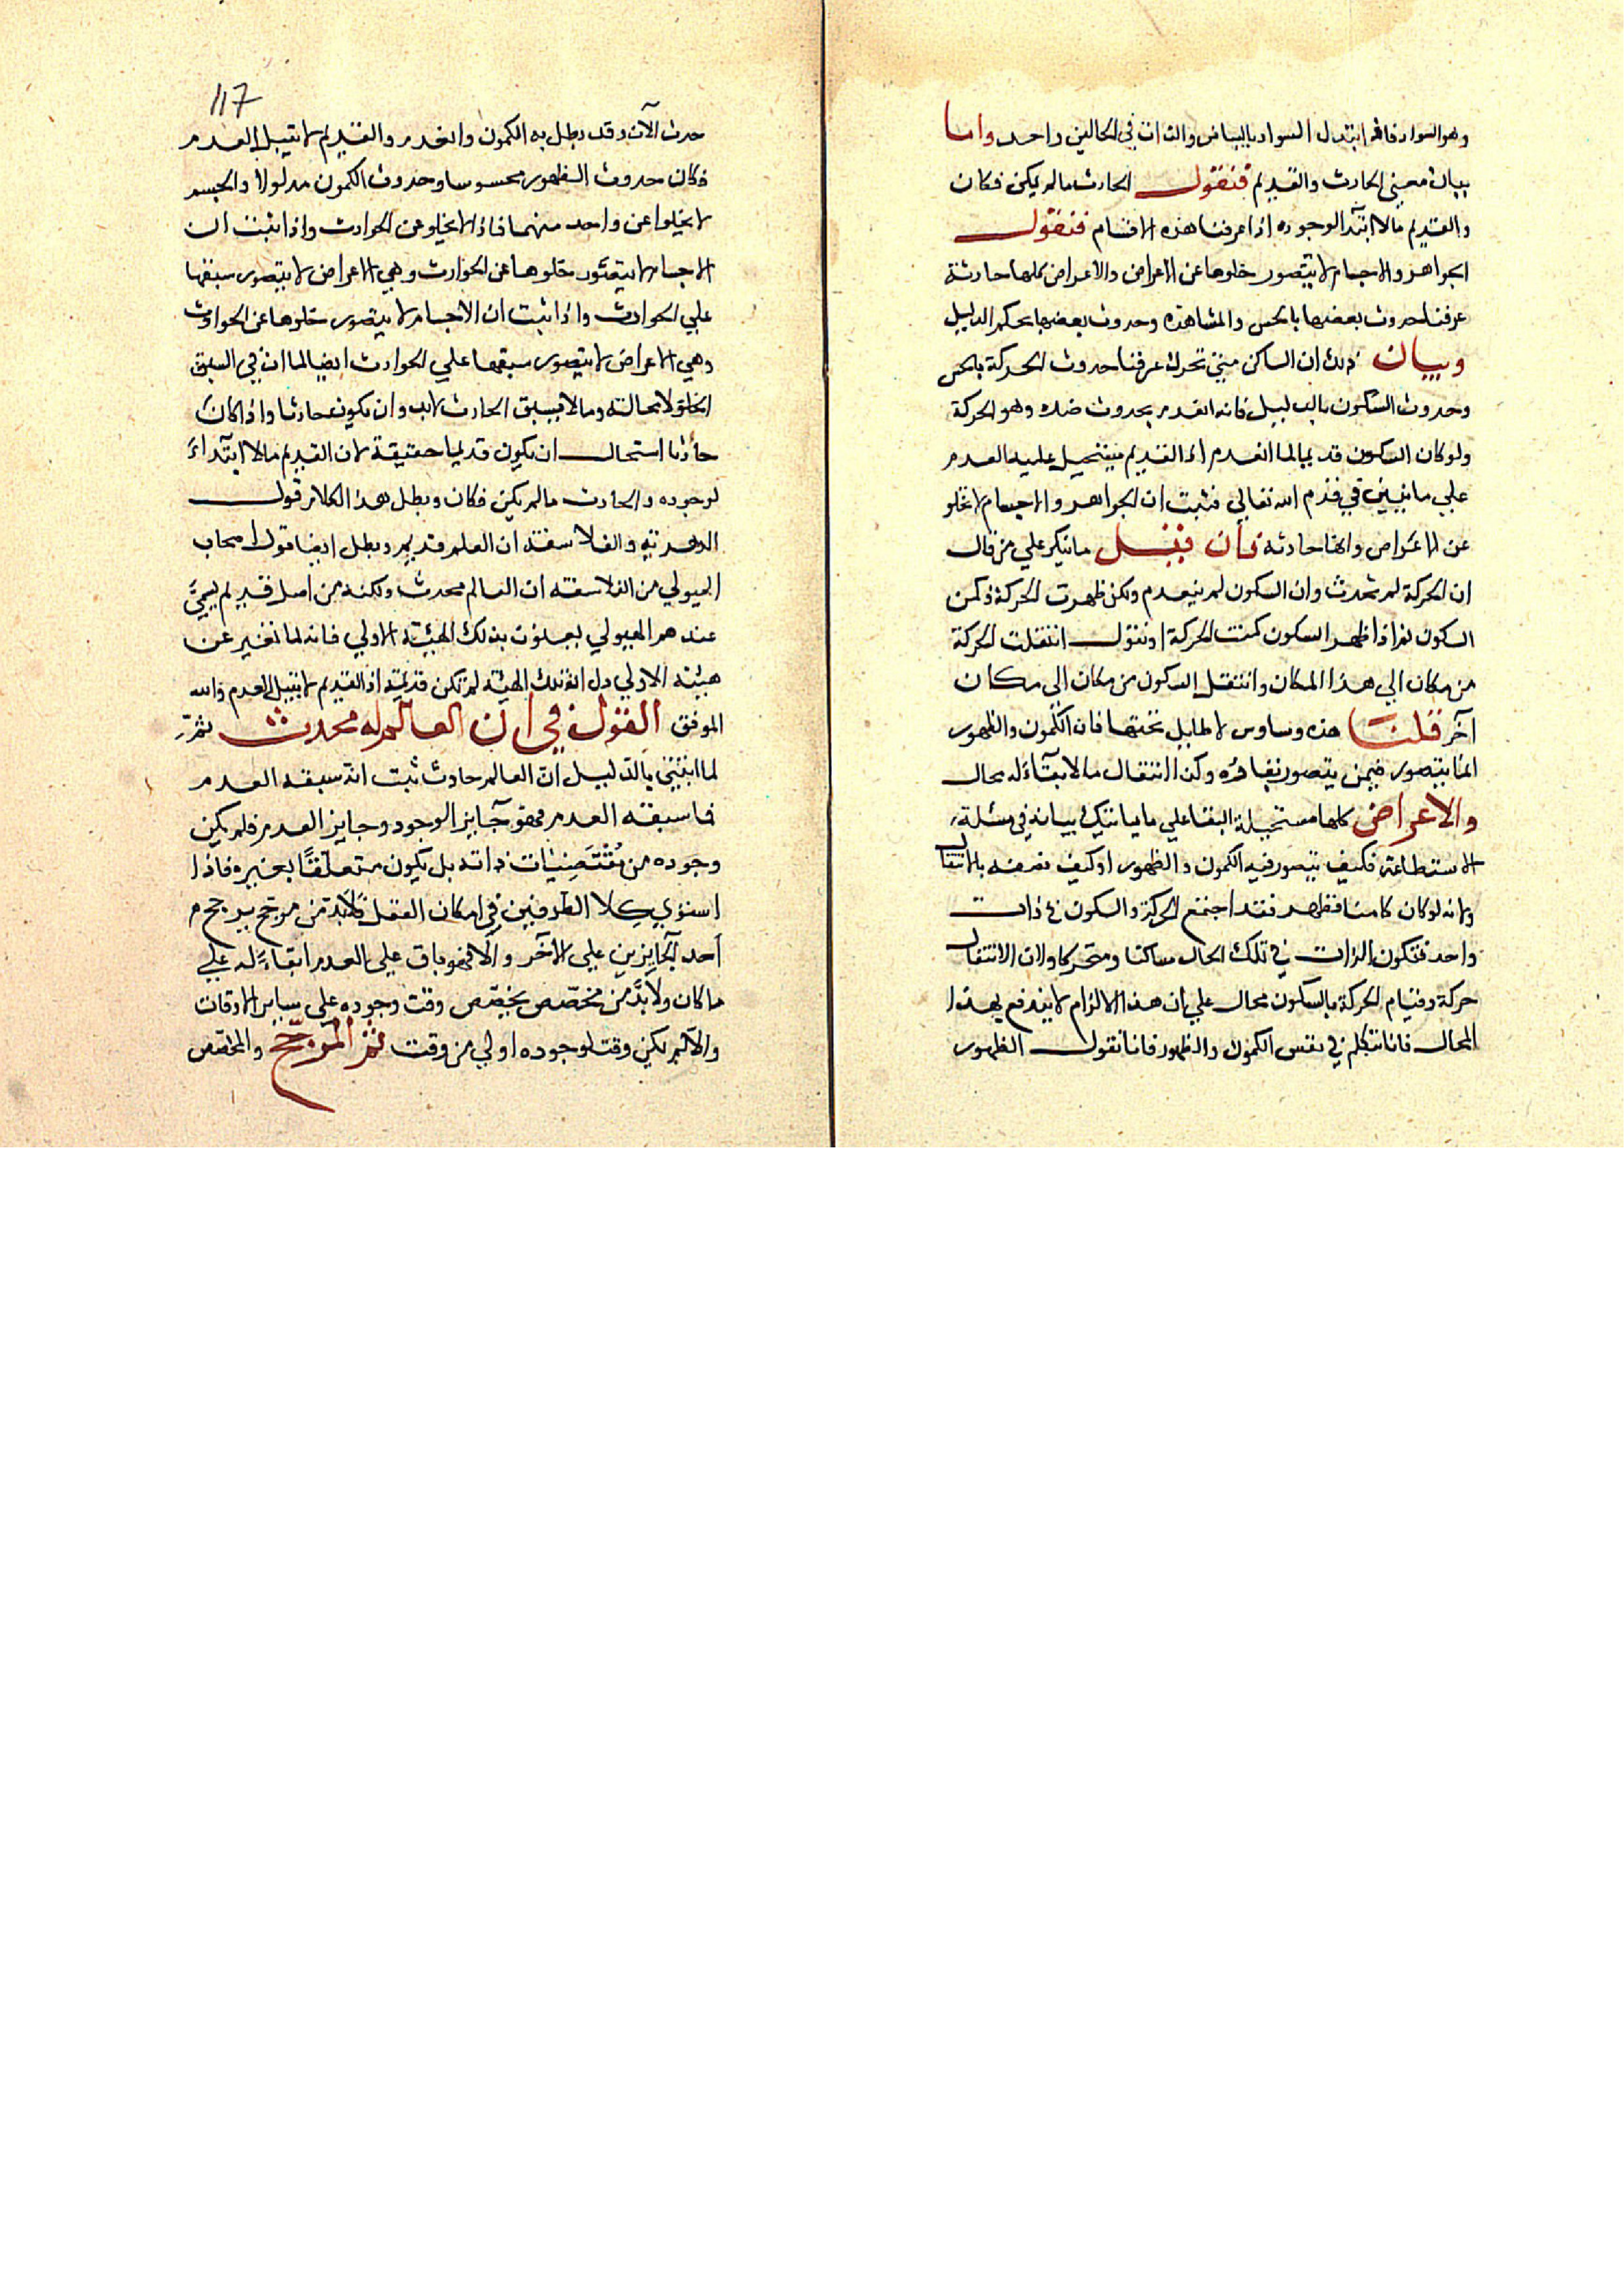 وهو السواد فانه ابتدل السواد بالبياض والذات في الحالين واحد واما
بيان معنى الحادث والقديم فنقول الحادث ما لم يكن فكان
والقديم ما لا ابتدآ لوجوده اذا عرفنا هذه الاقسام فنقول
الجواهر والاجسام لا يتصور خلوها عن الاعراض والاعراض كلها حادثة
عرفنا حدوث بعضها بالحس والمشاهدة وحدوث بعضها بحكم الدليل
وبيان ذلك ان الساكن متى تحرك عرفنا حدوث الحركة بالحس
وحدوث السكون بالدليل فانه انعدم بحدوث ضده وهو الحركة
ولو كان السكون قديما لما انعدم اذ القديم يستحيل عليه العدم
علي ما نبين في قدم الله تعالي فثبت ان الجواهر والاجسام لا تخلو
عن الاعراض وانها حادثة فان قيل ما تنكر علي من قال
ان الحركة لم تحدث وان السكون لم ينعدم ولكن ظهرت الحركة وكمن
السكون ثم اذا ظهر السكون كمنت الحركة او نقول انتقلت الحركة
من مكان الي هذا المكان وانتقل السكون من مكان الى مكان
آخر قلنا هذه وساوس لا طايل تحتها فان الكمون والظهور
انما يتصور فيمن يتصور بقاؤه وكذا الانتقال ما لا بقآء له محال
والاعراض كلها مستحيلة البقا علي ما ياتيك بيانه في مسئلة
الاستطاعة فكيف يتصور فيه الكمون والظهور او كيف نصفه بالانتقال
ولانه لو كان كامنا فظهر فقد اجتمع الحركة والسكون في ذات
واحد فتكون الذات في تلك الحال ساكنا ومتحركا ولان الانتقال
حركة وقيام الحركة بالسكون محال علي ان هذا الالزام لا يندفع بهذا
المحال فانا نتكلم في نفس الكمون والظهور فانا نقول الظهور
117
حدث الآن وقد بطل به الكمون وانعدم والقديم لا يقبل العدم
فكان حدوث الظهور محسوسا وحدوث الكمون مدلولا والجسم
لا يخلوا عن واحد منهما فاذا لا يخلو عن الحوادث واذا ثبت ان
الاجسام لا يتصور خلوها عن الحوادث وهي الاعراض لا يتصور سبقها
علي الحوادث واذا ثبت ان الاجسام لا يتصور خلوها عن الحوادث
وهي الاعراض لا يتصور سبقها علي الحوادث ايضا لما ان في السبق
الخلو لا محالة وما لا يسبق الحادث لابد وان يكون حادثا واذا كان
حادثا استحال ان يكون قديما حقيقة لان القديم ما لا ابتدآءَ
لوجوده والحادث ما لم يكن فكان وبطل هذا الكلام قول
الدهرية والفلاسفة ان العلم قديم وبطل ايضا قول اصحاب
الهيولي من الفلاسفة ان العالم محدث ولكنه من اصل قديم يسمَّى
عندهم الهيولي يعنون بذلك الهيئة الاولي فانه لما تغير عن
هيئة الاولي دل ان تلك الهيئة لم تكن قديمة اذ القديم لا يقبل العدم والله
الموفق القول في ان العالم له محدث ثم
لما اثبتنى بالدليل ان العالم حادث ثبت انه سبقه العدم
فما سبقه العدم فهو جآيز الوجود وجايز العدم فلم يكن
وجوده من مُقْتَضِيَات ذاته بل يكون متعلقًا بغيره فاذا
استوي كِلا الطرفين في امكان العقل فلابد من مرجح يرجح
أحد الجآيزين علي الآخر والا فهو باق علي العدم ابقاءً له علي
ما كان ولابدَّ من مخصّص يخصّص وقت وجوده علي ساير الاوقات
والا لم يكن وقت لوجوده اولي من وقت ثم المرجح والمخصص